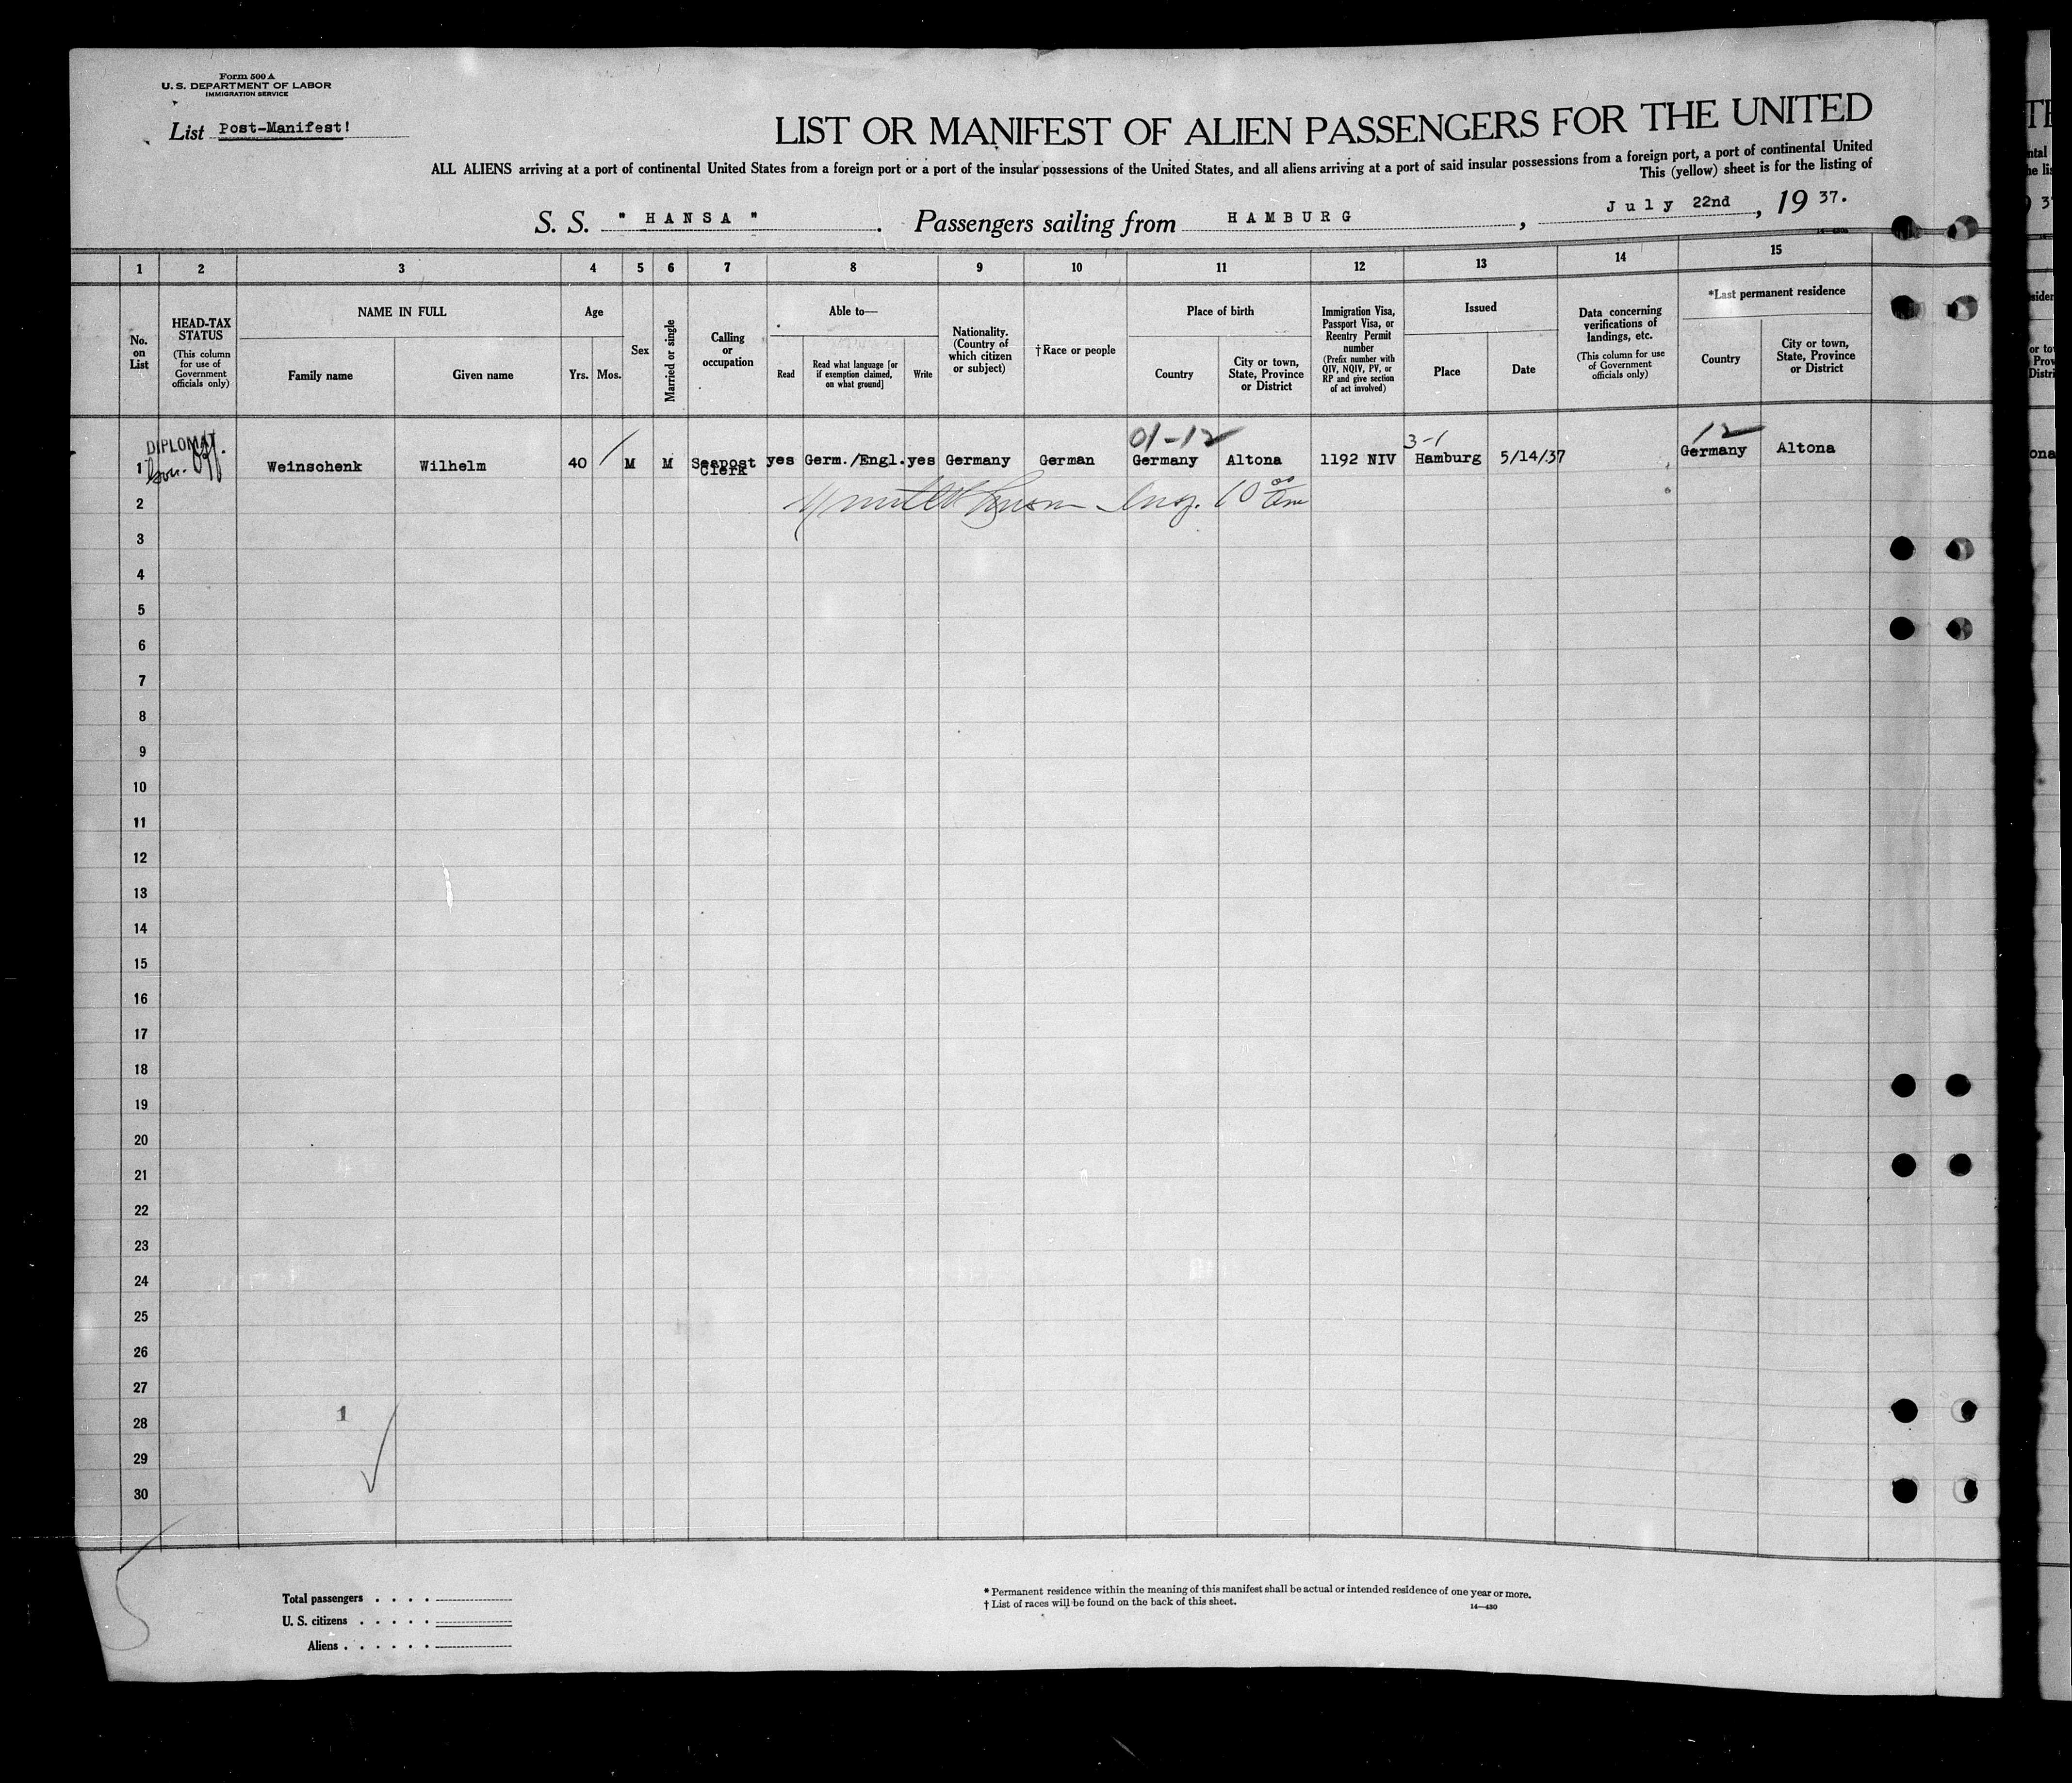 Form 500 A
U. S. DEPARTMENT OF LABOR
IMMIGRATION SERVICE
List Post-Manifest!
LIST OR MANIFEST OF ALIEN PASSENGERS FOR THE UNITED
ALL ALIENS arriving at a port of continental United States from a foreign port or a port of the insular possessions of the United States, and all aliens arriving at a port of said insular possessions from a foreign port, a port of continental United
This (yellow) sheet is for the listing of
S. S. " HANSA " . Passengers sailing from HAMBURG , July 22nd , 19 37.
1 2 3 4 5 6 7 8 9 10 11 12 13 14 15
No. on List
HEAD-TAX STATUS
(This column for use of Government officials only)
NAME IN FULL
Family name
Given name
Age
Yrs. Mos.
Sex
Married or single
Calling or occupation
Able to—
Read
Read what language [or if exemption claimed, on what ground]
Write
Nationality. (Country of which citizen or subject)
†Race or people
Place of birth
Country
City or town, State, Province or District
Immigration Visa, Passport Visa, or Reentry Permit number
(Prefix number with QIV, NQIV, PV, or RP and give section of act involved)
Issued
Place
Date
Data concerning verifications of landings, etc.
(This column for use of Government officials only)
*Last permanent residence
Country
City or town, State, Province or District
DIPLOMAT 01-12 3-1 12
1 Gov. Off. Weinschenk Wilhelm 40 M M Seapost Clerk yes Germ./Engl. yes Germany German Germany Altona 1192 NIV Hamburg 5/14/37 Germany Altona
2
3
4
5
6
7
8
9
10
11
12
13
14
15
16
17
18
19
20
21
22
23
24
25
26
27
28 1
29
30
Total passengers . . . .
U. S. citizens . . . . .
Aliens . . . . . .
* Permanent residence within the meaning of this manifest shall be actual or intended residence of one year or more.
† List of races will be found on the back of this sheet.
14—430